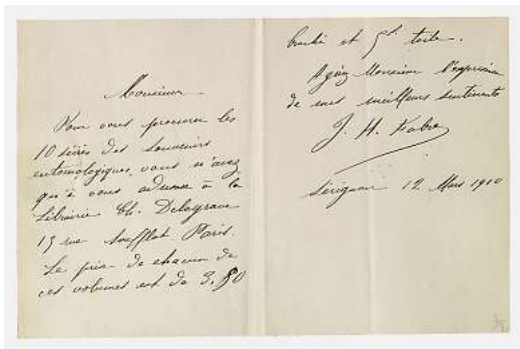 Monsieur
Pour vous procurer les
10 séries des Souvenirs
entomologiques, vous n'avez
qu'à vous adresser à la
Librairie Ch. Delagrave
15 rue Soufflot. Paris.
Le prix de chacun de
ces volumes est de 3.50
broché et 5f. toile.
Agréez Monsieur l'expression
de mes meilleurs sentiments
J. H. Fabre
Sérignan 12 Mars 1910